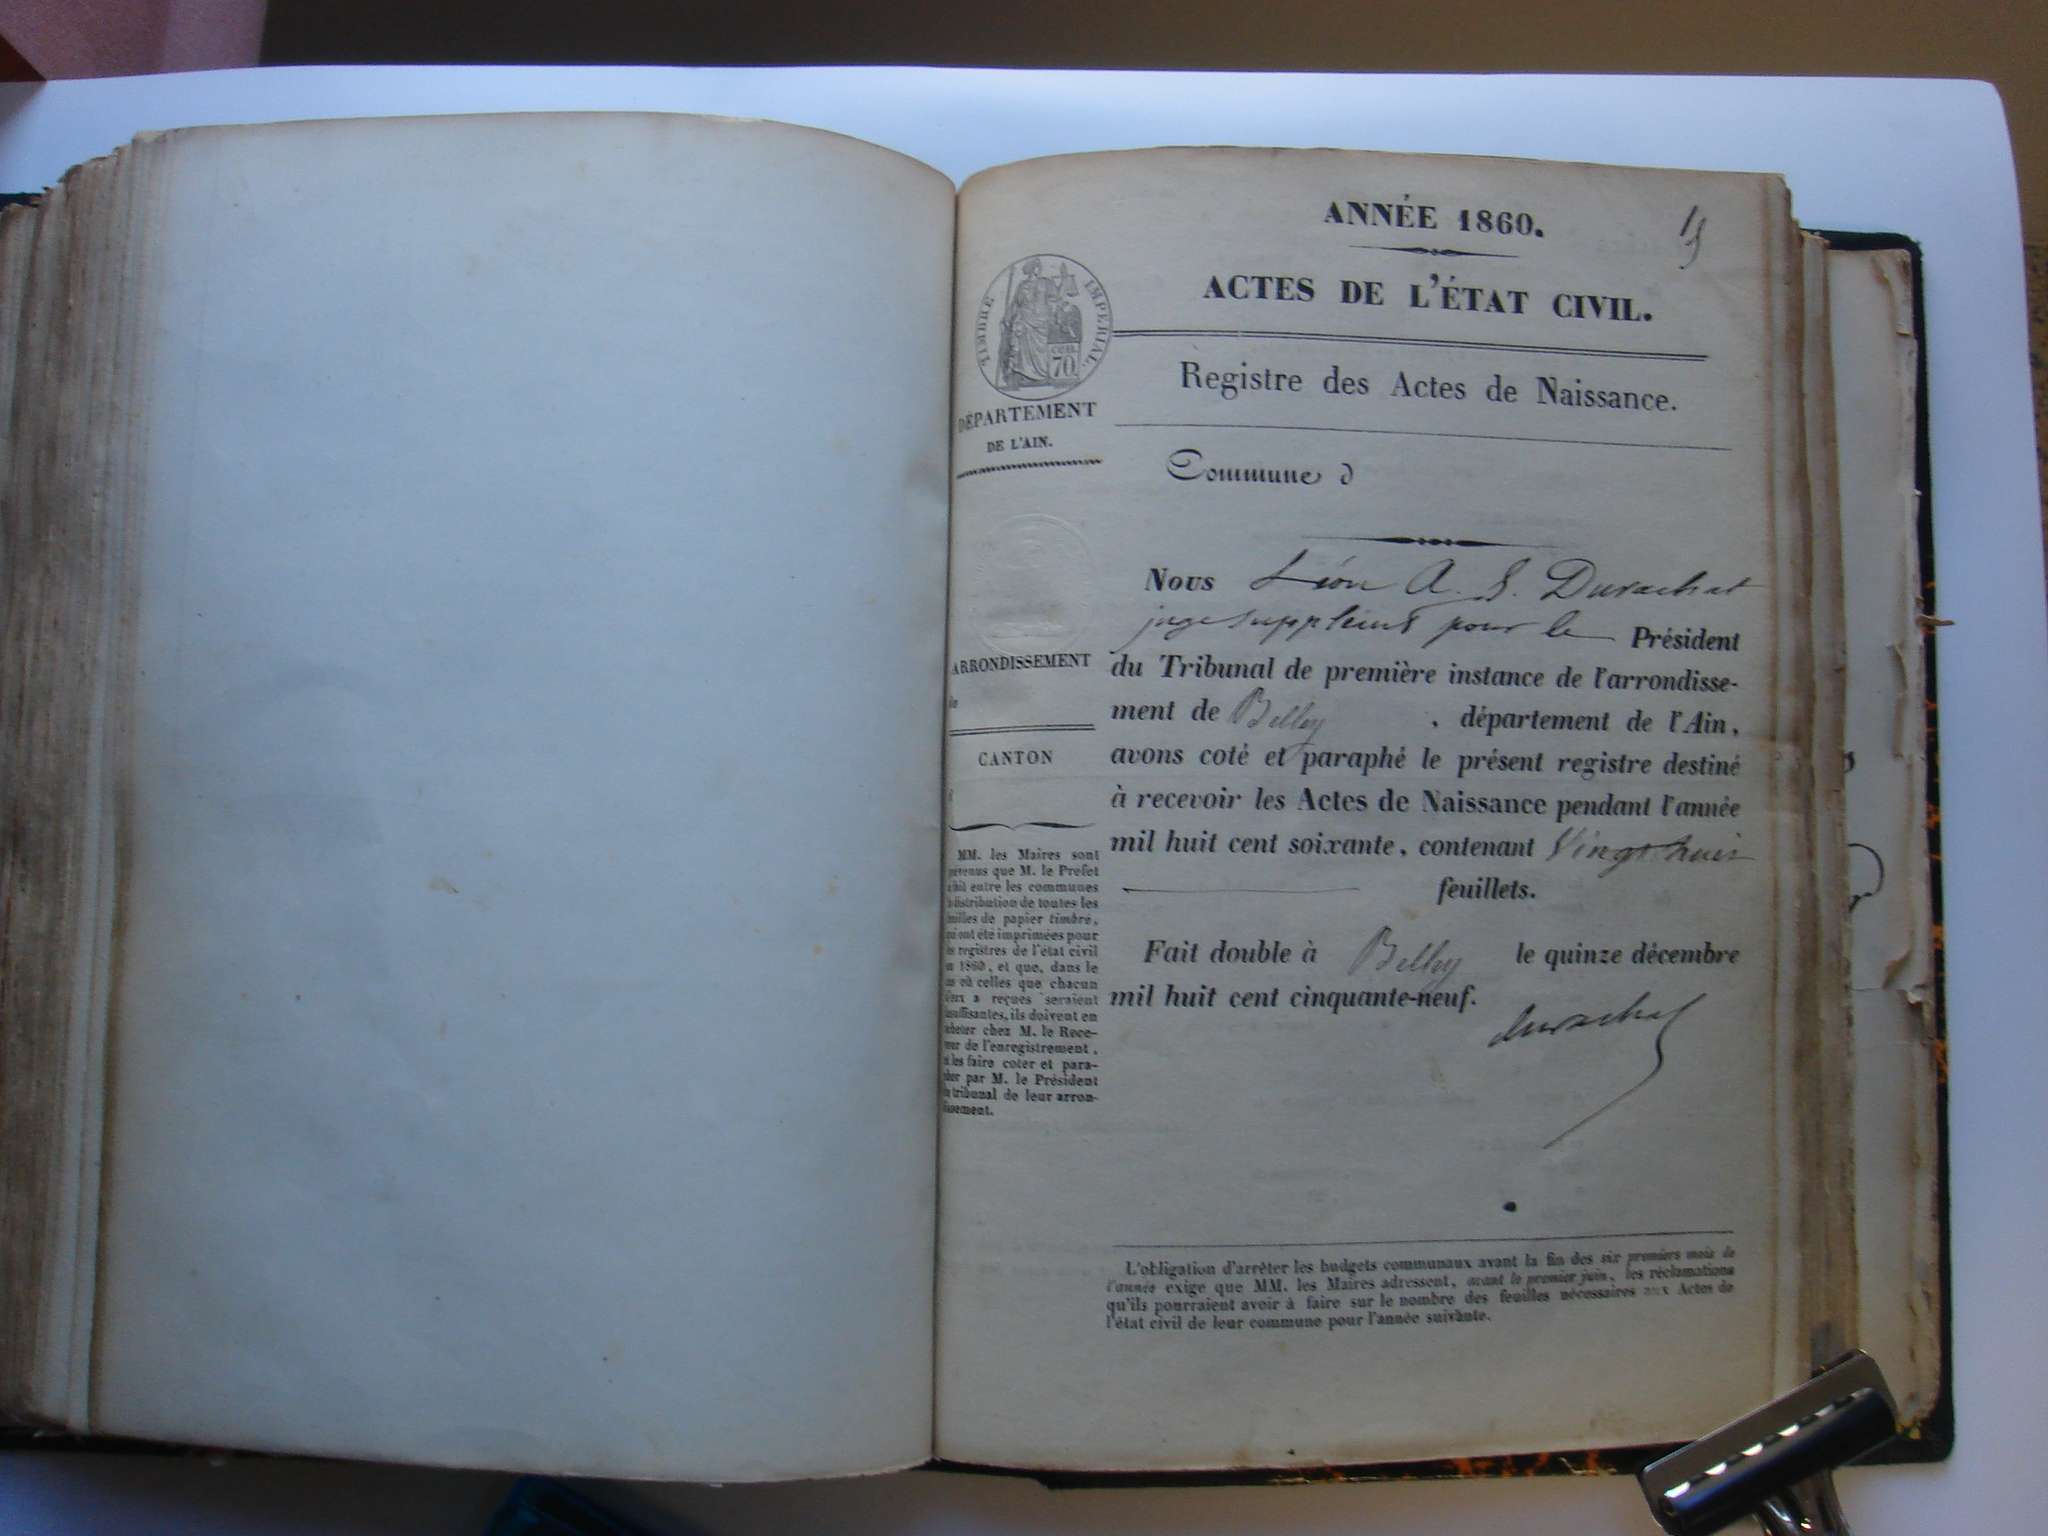 ANNÉE 1860.
ACTES DE L'ÉTAT CIVIL.
TIMBRE IMPÉRIAL.
CEN.
70
DÉPARTEMENT
DE L'AIN.
Registre des Actes de Naissance.
Commune d
Nous Léon A. S. Durachat
juge suppléant pour le Président
du Tribunal de première instance de l'arrondisse-
ment de Belley , département de l'Ain,
avons coté et paraphé le présent registre destiné
à recevoir les Actes de Naissance pendant l'année
mil huit cent soixante, contenant Vingt huit
feuillets.
Fait double à Belley le quinze décembre
mil huit cent cinquante-neuf.
Durachat
ARRONDISSEMENT
CANTON
MM. les Maires sont
prévenus que M. le Préfet
fait entre les communes
distribution de toutes les
feuilles de papier timbré,
qui ont été imprimées pour
les registres de l'état civil
1860, et que, dans le
cas où celles que chacun
d'eux a reçues seraient
insuffisantes, ils doivent en
acheter chez M. le Rece-
veur de l'enregistrement,
et les faire coter et para-
pher par M. le Président
du tribunal de leur arron-
dissement.
L'obligation d'arrêter les budgets communaux avant la fin des six premiers mois de
l'année exige que MM. les Maires adressent, avant le premier juin, les réclamations
qu'ils pourraient avoir à faire sur le nombre des feuilles nécessaires aux Actes de
l'état civil de leur commune pour l'année suivante.